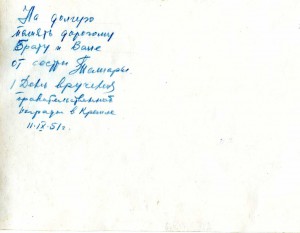 На долгую
память дорогому
Брату и Ване
от сестры Тамары.
День вручения
правительственной
награды в Кремле
11.IX.51г.